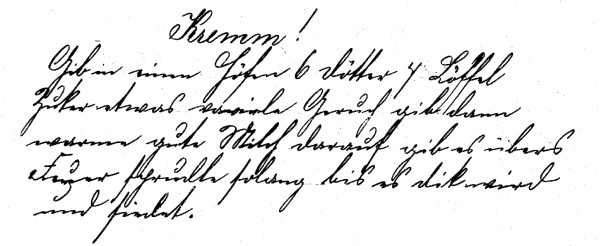 Kremm!
Gib in einen Höfen 6 Dötter 4 Löffel
Zuker etwas vaniele Geruch gib dann
warme gute Milch darauf gib es übers
Feuer sprudle solang bis es dik wird
und siedet.